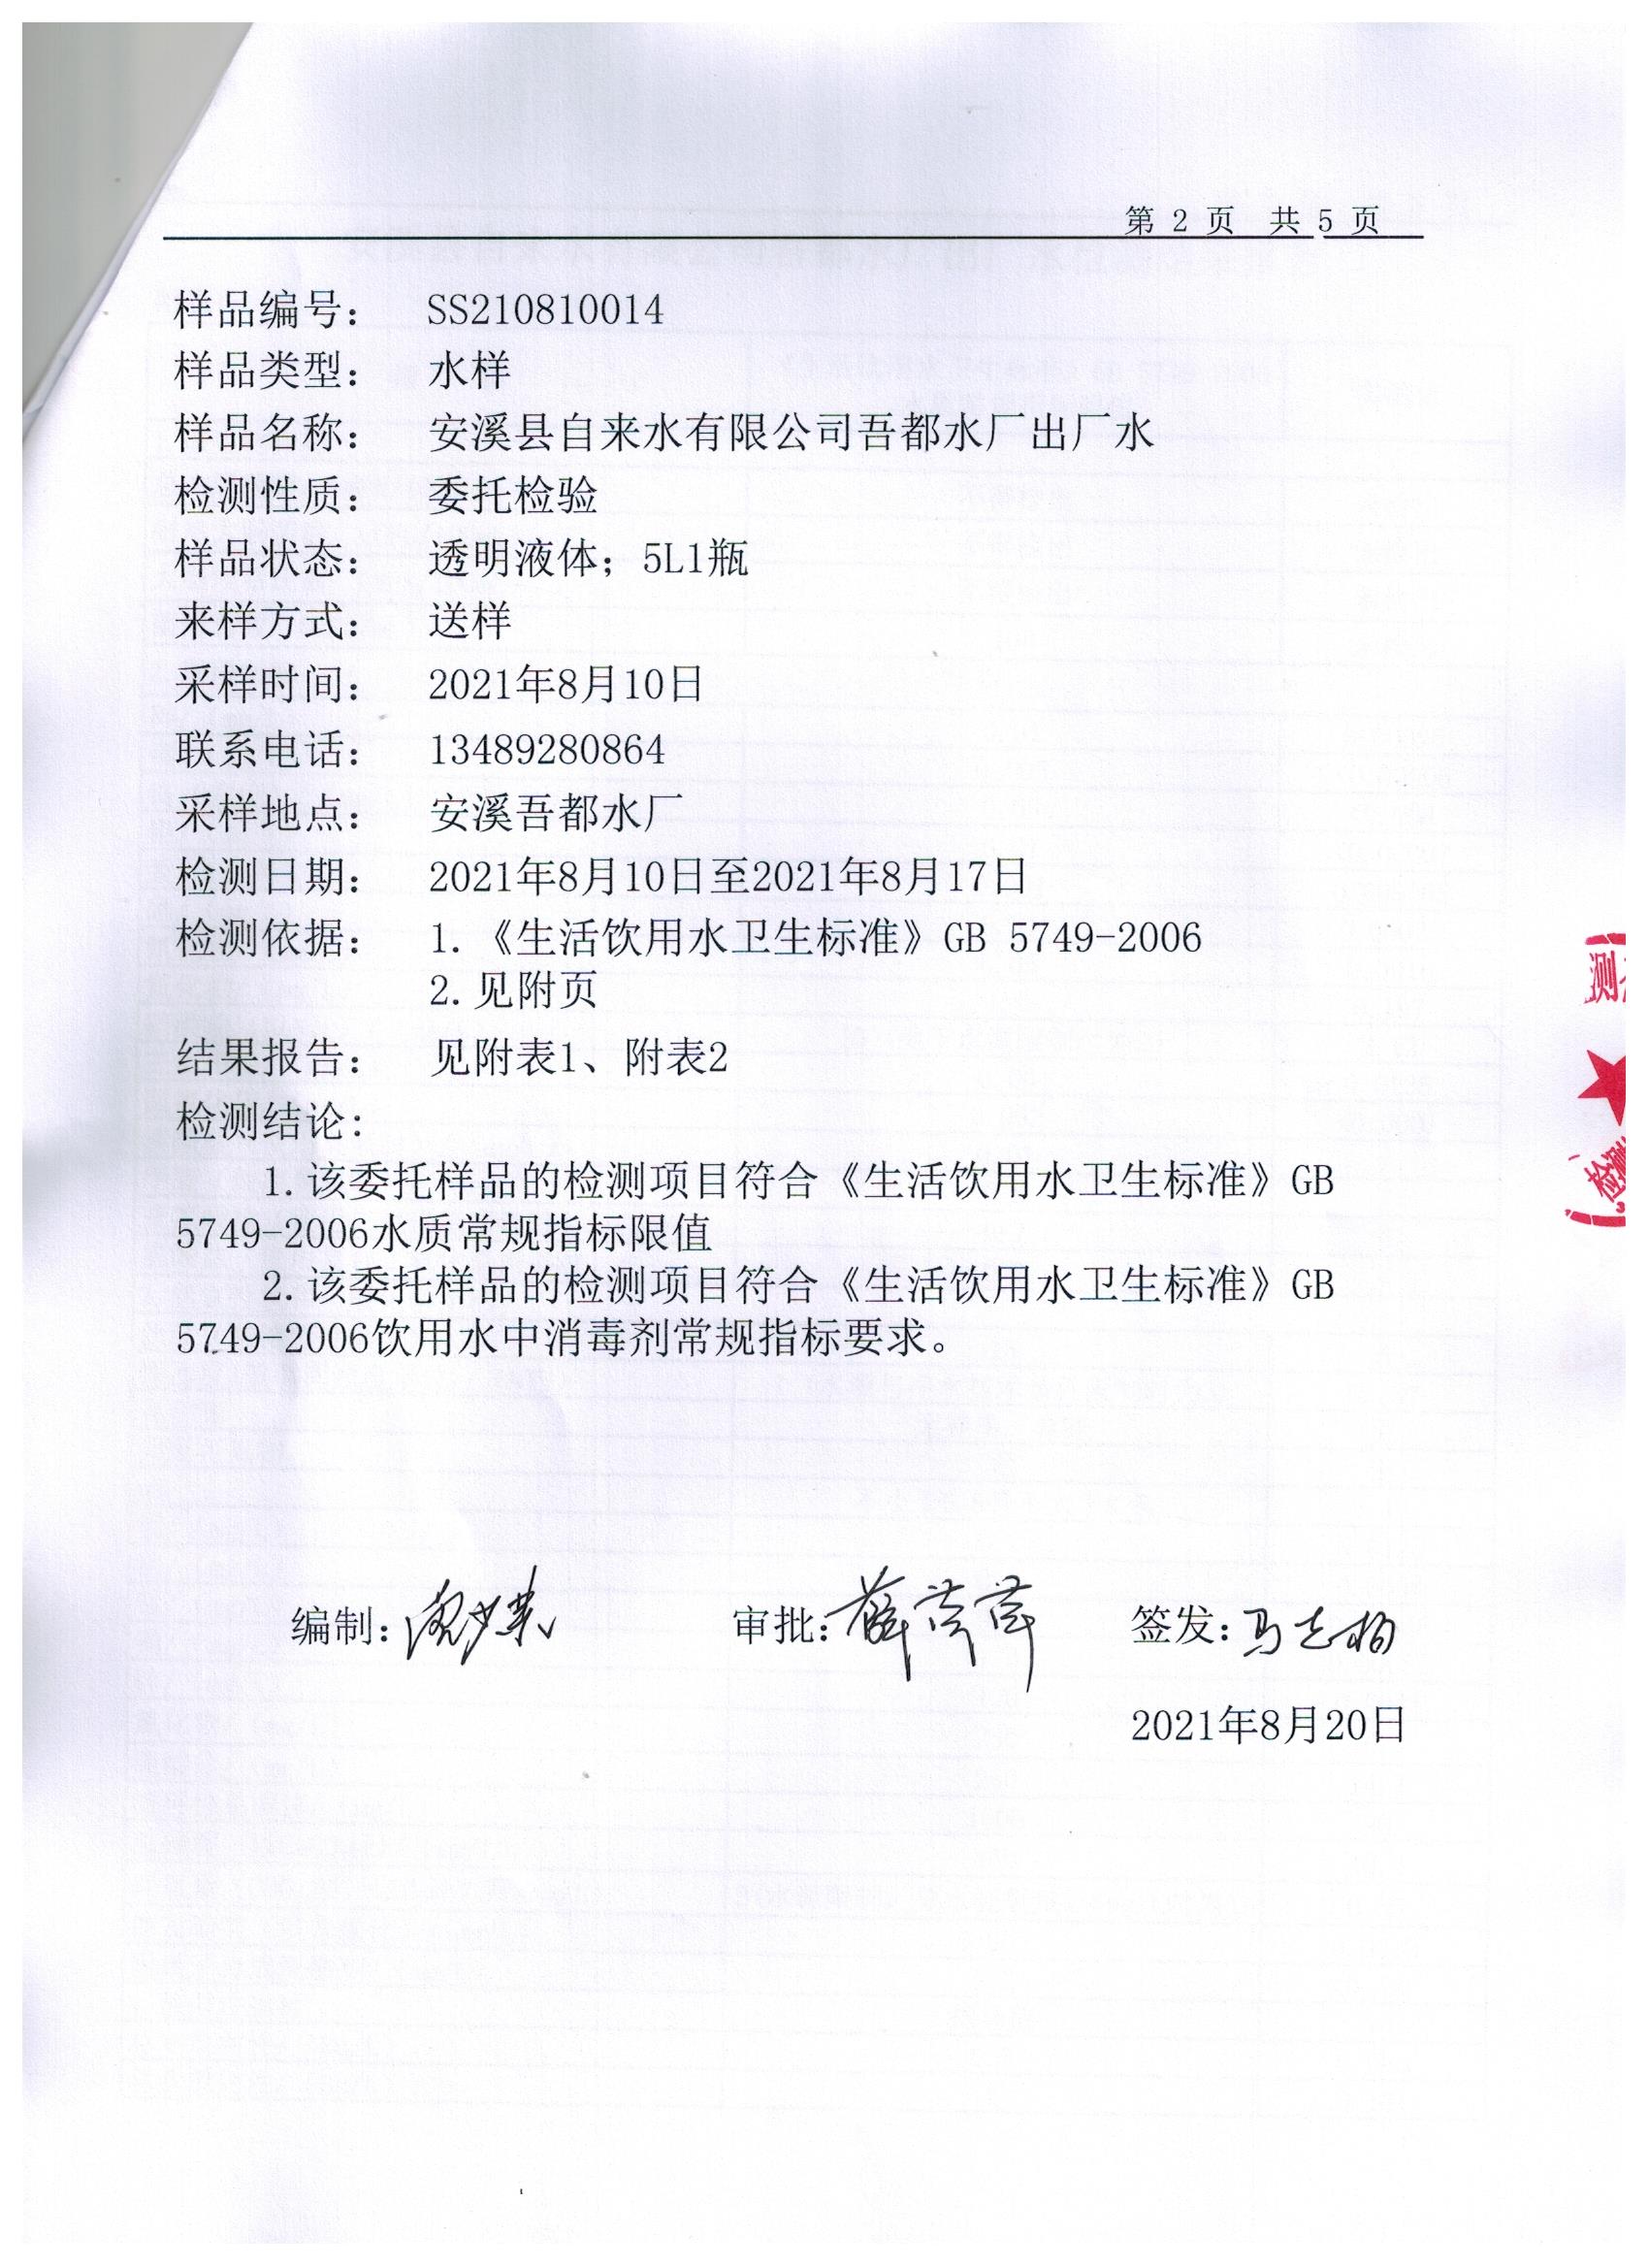 第 2 页 共 5 页
样品编号： SS210810014
样品类型： 水样
样品名称： 安溪县自来水有限公司吾都水厂出厂水
检测性质： 委托检验
样品状态： 透明液体；5L1瓶
来样方式： 送样
采样时间： 2021年8月10日
联系电话： 13489280864
采样地点： 安溪吾都水厂
检测日期： 2021年8月10日至2021年8月17日
检测依据： 1.《生活饮用水卫生标准》GB 5749-2006
2.见附页
结果报告： 见附表1、附表2
检测结论:
1.该委托样品的检测项目符合《生活饮用水卫生标准》GB
5749-2006水质常规指标限值
2.该委托样品的检测项目符合《生活饮用水卫生标准》GB
5749-2006饮用水中消毒剂常规指标要求。
编制: 审批: 签发:
2021年8月20日
测
检测